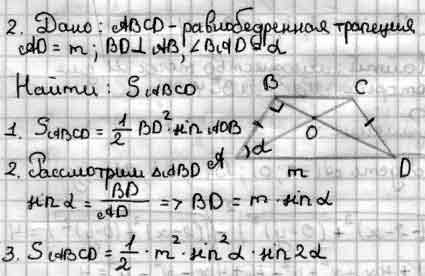 2. Дано: ABCD - равнобедренная трапеция
AD = m; BD⊥AB; ∠BAD = α
Найти: SABCD
B C
1. SABCD = 1/2 BD² · sin AOB
O
2. Рассмотрим ΔABD
A α D
m
sin α = BD/AD => BD = m · sin α
3. SABCD = 1/2 · m² · sin²α · sin 2α